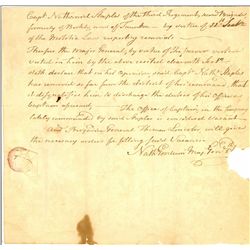 Capt Nathaniel Staples of the third Regiment, second Brigade
formerly of and now of — by virtue of 
of the Militia Law respecting removals
Therefore the Major General, by virtue of the power vested
in him by the above recited eleventh Sect
doth declare that in his opinion said Capt Nath Staples
has removed so far from the limits of his command that
it disqualifies him to discharge the duties of his office as
Captain aforesaid. The Office of Captain in the company
lately commanded by said Staples is considered vacant
And Brigadier General Lincoln will give
the necessary orders for filling said Vacancy
Nath Goodwin Maj Gen